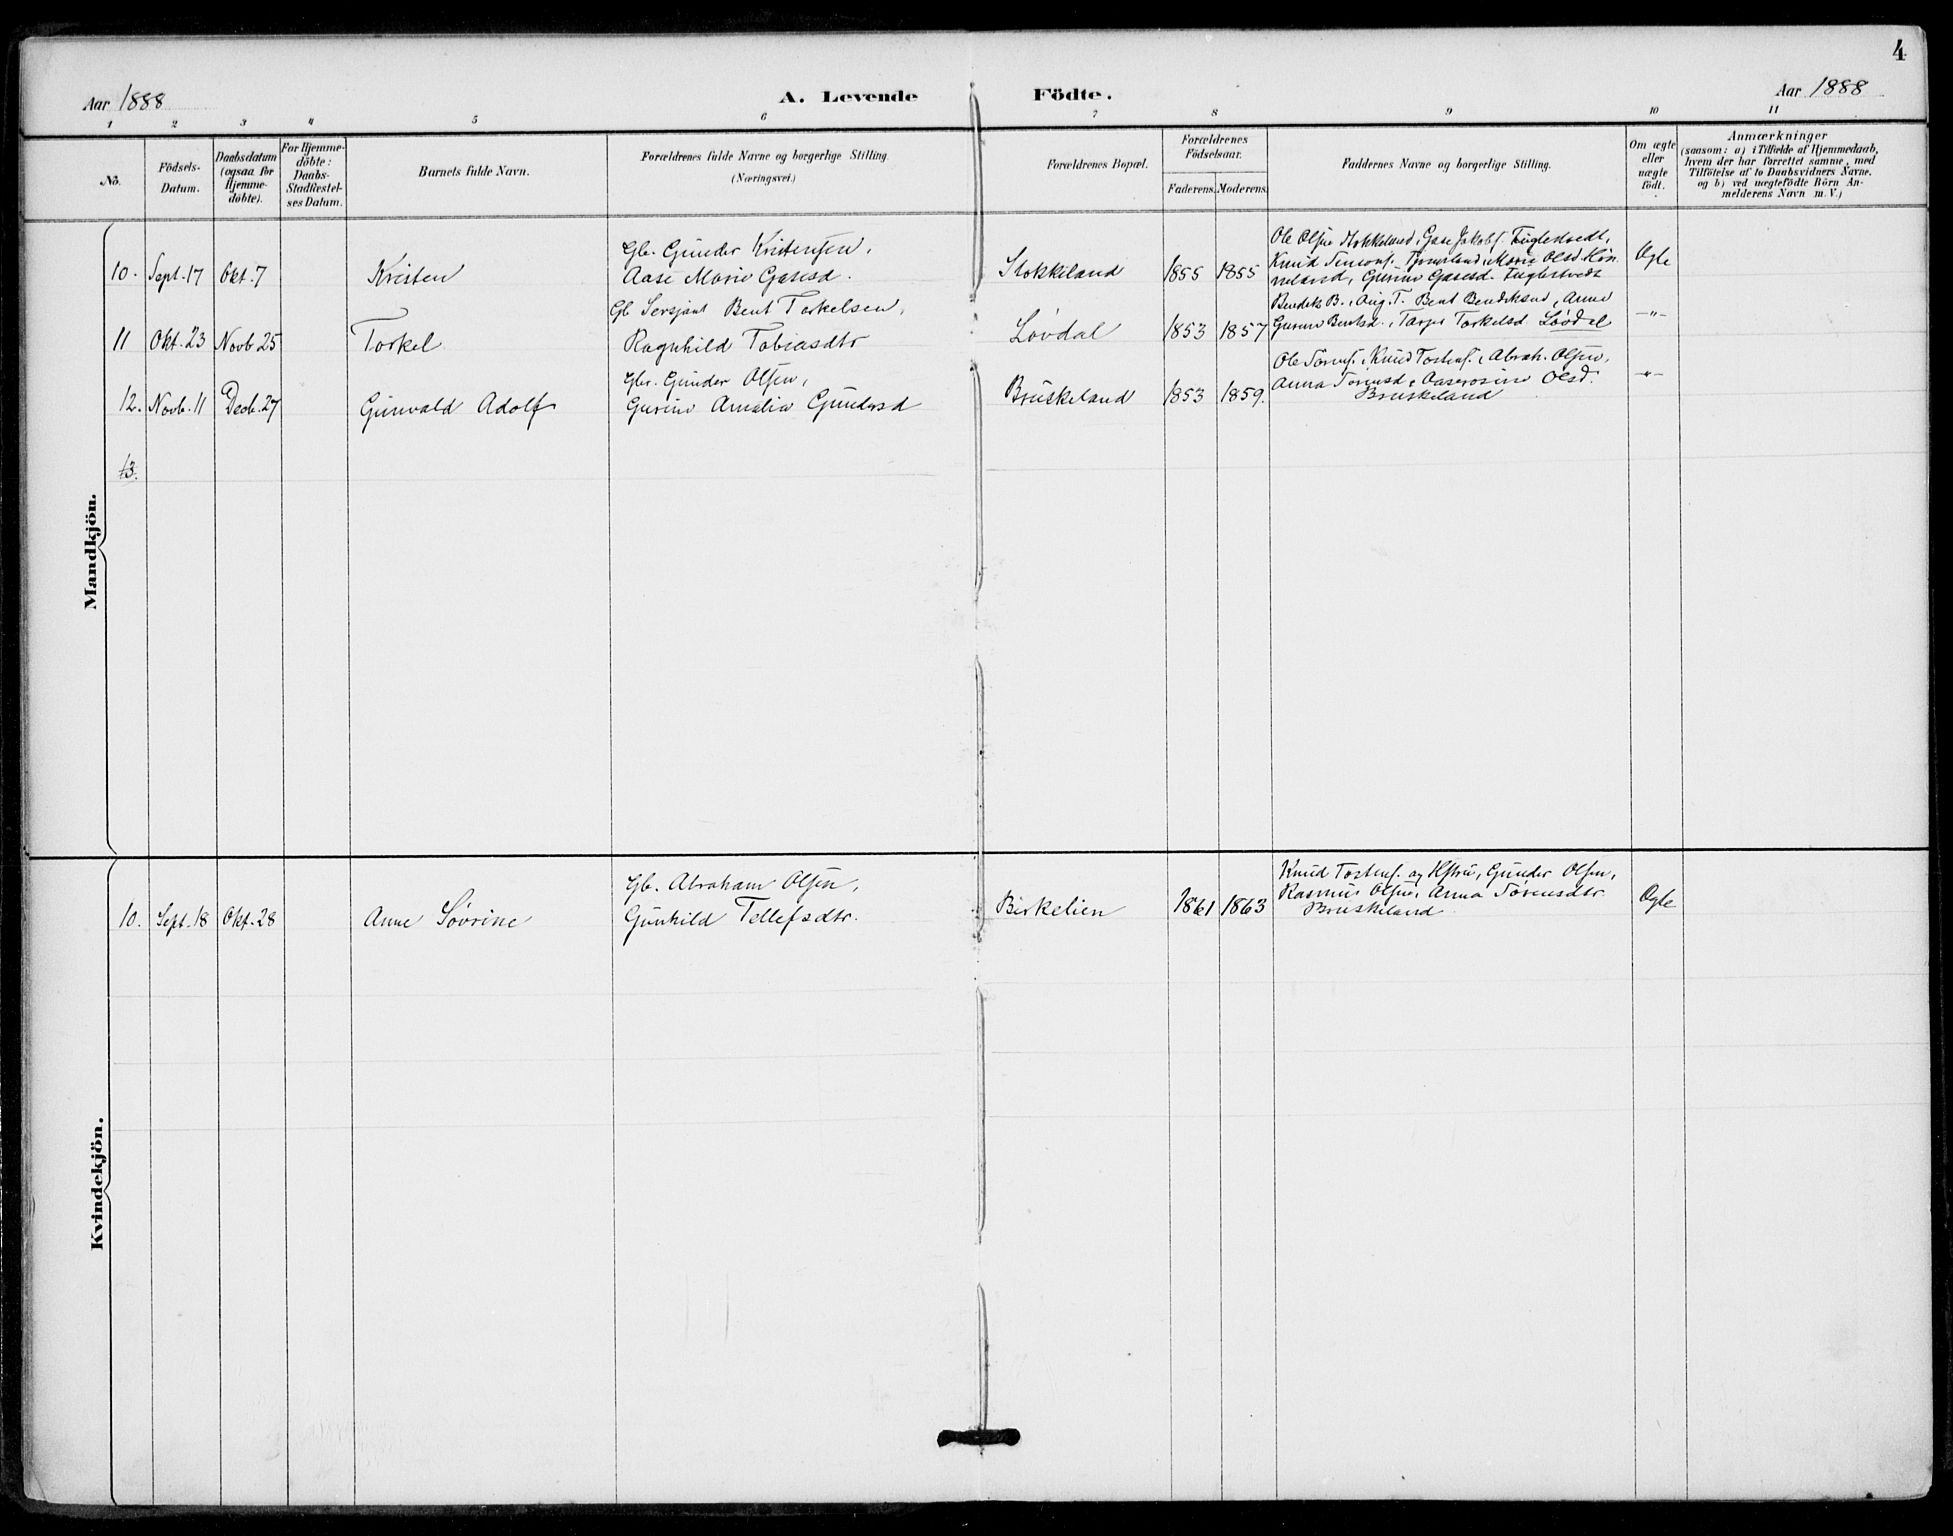 4
Aar 1888
A. Levende Födte.
Aar 1888
1 2 3 4 5 6 7 8 9 10 11
No.
Födsels-
Datum.
Daabsdatum
(ogsaa for
Hjemme-
döbte).
For Hjemme-
döbte:
Daabs-
Stadfæstel-
ses Datum.
Barnets fulde Navn.
Forældrenes fulde Navne og borgerlige Stilling.
(Næringsvei.)
Forældrenes Bopæl.
Forældrenes
Födselsaar.
Faderens. Moderens.
Faddernes Navne og borgerlige Stilling.
Om ægte
eller
uægte
født.
Anmærkninger
(saasom: a) i Tilfælde af Hjemmedaab,
hvem der har forrettet samme, med
Tilföielse af to Daabsvidners Navne.
og b) ved uægtefödte Börn An-
melderens Navn m. V.)
Mandkjön.
10. Sept. 17 Okt. 7 Kristen
Gbr. Gunder Kristensen,
Aase Marie Gasesd.
Stokkeland 1855 1855
Ole Olsen Stokkeland, Gase Jakobs. Fuglestvedt,
Knud Tensons. Maria Olsd. Hön-
neland, Gurine Gasesd. Fuglestvedt
Ægte
11 Okt. 23 Novb 25 Torkel
Gb Sersjant Bent Torkelsen,
Ragnhild Tobiasdtr
Lövdal 1853 1857
Bendik B., Aug. T. Bent Bendiksen, Anne
Gurine Bentsd., Tarje Torkelsd Lövdal
-"-
12. Novb. 11 Decb. 27 Gunvald Adolf
Gbr. Gunder Olsen,
Gurine Amalia Gundersd
Bruskeland 1853 1859.
Ole Törress., Knud Tostens., Abrah. Olsen,
Anna Torensd, Aaserosine Olsd.
Bruskeland
-"-
13.
Kvindekjön.
10. Sept. 18 Okt. 28 Anne Sövrine
Gb. Abraham Olsen,
Gunhild Tellefsdtr.
Birkelien 1861 1863
Knud Tostens. og Hstru, Gunder Olsen,
Rasmus Olsen, Anna Törensdtr
Bruskeland
Ægte